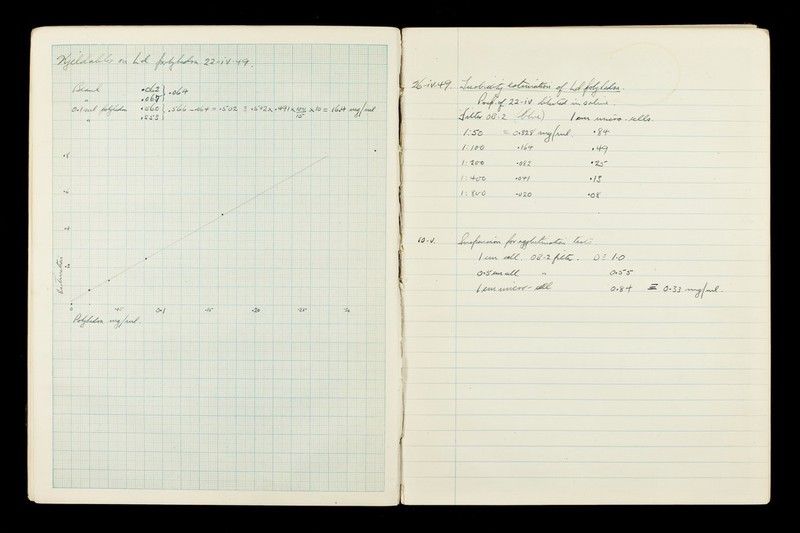 Kjeldahls on Ld polyhedra 22-iv-49.
Blank ·062 ·064
" ·067
0·1 ml polyhedra ·060
" ·053
·566 - ·064 = ·502
x 10 = 16·4 mg/ml
·8
·6
·4
·2
Extinction
0 ·05 0·1 ·15 ·20 ·25
Polyhedra mg/ml.
26-iv-49. Turbidity estimation of Ld polyhedra.
Prep of 22-iv diluted in saline.
Filter OB·2 (blue) 1 cm micro-cells.
1:50 = 0·328 mg/ml ·84
1:100 ·164 ·49
1:200 ·082 ·25
1:400 ·041 ·13
1:800 ·020 ·08
10-v. Suspension for agglutination tests
1 cm cell OB·2 filter. 1·0
0·5 cm cell " 0·55
1 cm micro-cell 0·84 ≡ 0·33 mg/ml.